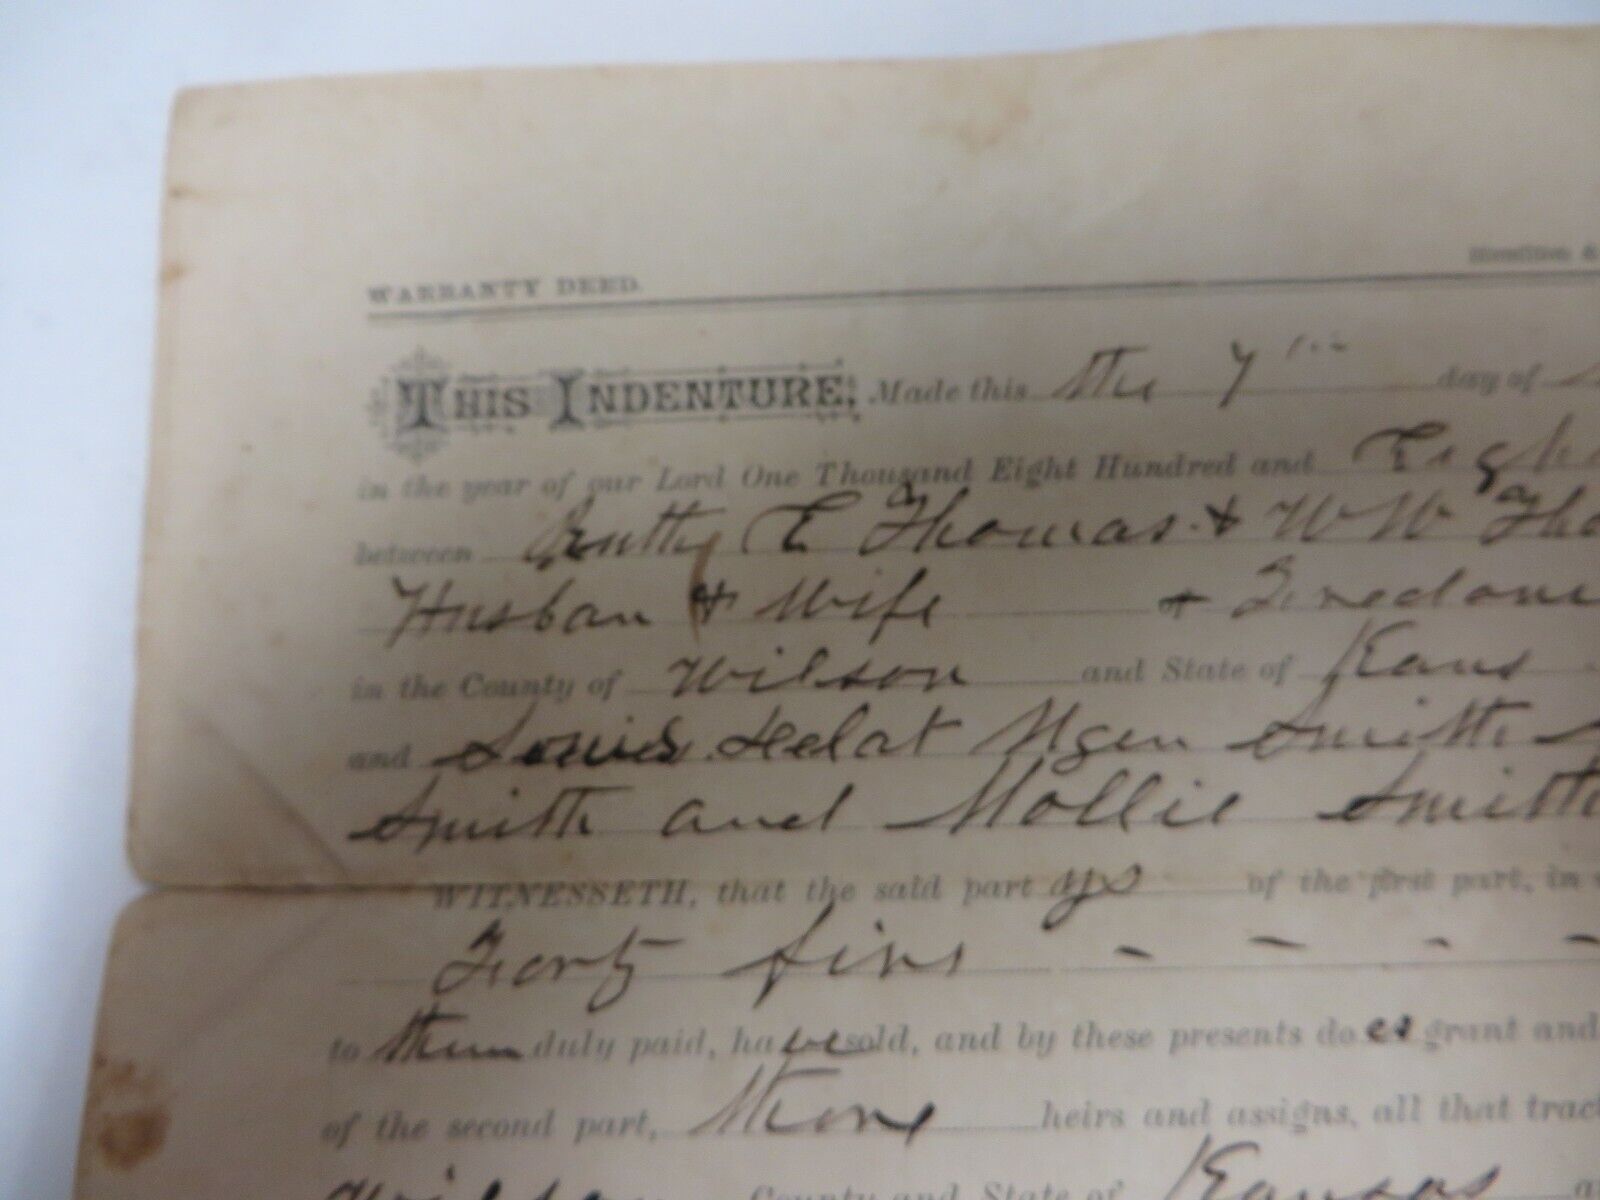 WARRANTY DEED.
THIS INDENTURE, Made this the 7 day of
in the year of our Lord One Thousand Eight Hundred and Eigh
between E Thomas & W W Tho
Husban & Wife + Fredon
in the County of Wilson and State of Kans
and Smith
Smith and Mollie Smith
WITNESSETH, that the said part ys of the first part, in
Forty five - - - -
to them duly paid, ha ve sold, and by these presents do es grant and
of the second part, heirs and assigns, all that tract
Wilson County and State of Kansas